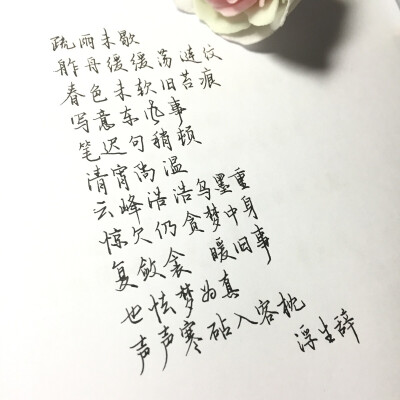 疏雨未歇
舴舟缓缓荡涟纹
春色未软旧苔痕
写意东风事
笔迟句稍顿
清宵尚温
云峰浩浩鸟墨重
惊欠仍贪梦中身
复敛衾 暖旧事
也怯梦为真
声声寒砧入客枕
浮生辞